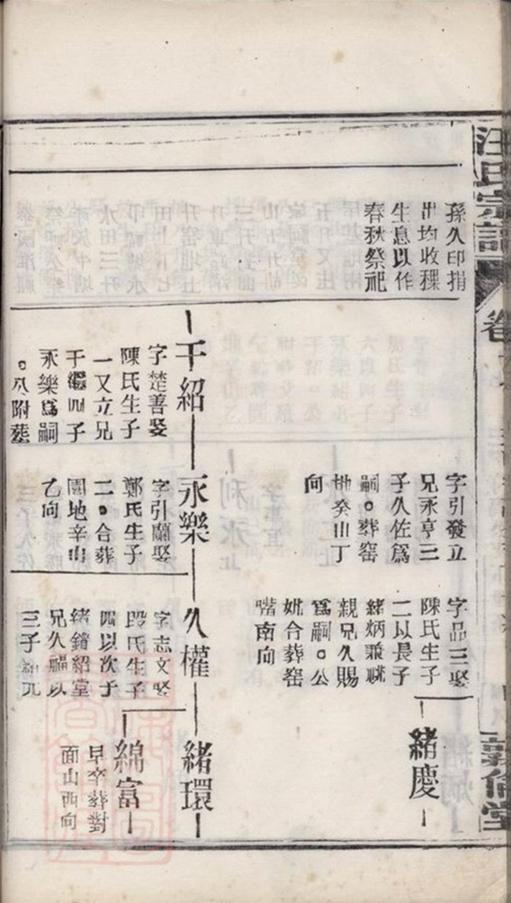 汪氏宗譜
卷
敦倫堂
孫久印捐
出均收穫
生息以作
春秋祭祀
字引發立
兄永亨三
子久佐爲
嗣。葬窰
坳癸山丁
向
字品三娶
陳氏生子
二以長子
緒炳兼祧
親兄久賜
爲嗣。公
妣合葬窰
嘴南向
緒慶
千紹
字楚善娶
陳氏生子
一又立兄
千繼四子
永樂爲嗣
。附葬
永樂
字引蘭娶
鄭氏生子
二。合葬
園地辛山
乙向
久權
字志文娶
段氏生子
四以次子
緒鏡紹堂
兄久福以
三子
緒環
綿富
早卒葬
面山西向